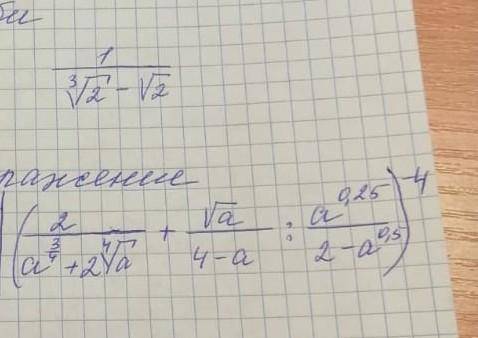 би
1
∛2 − √2
ражение
(2/(a^(3/4) + 2∜a) + √a/(4 − a) : a^(0,25)/(2 − a^(0,5)))^(−4)